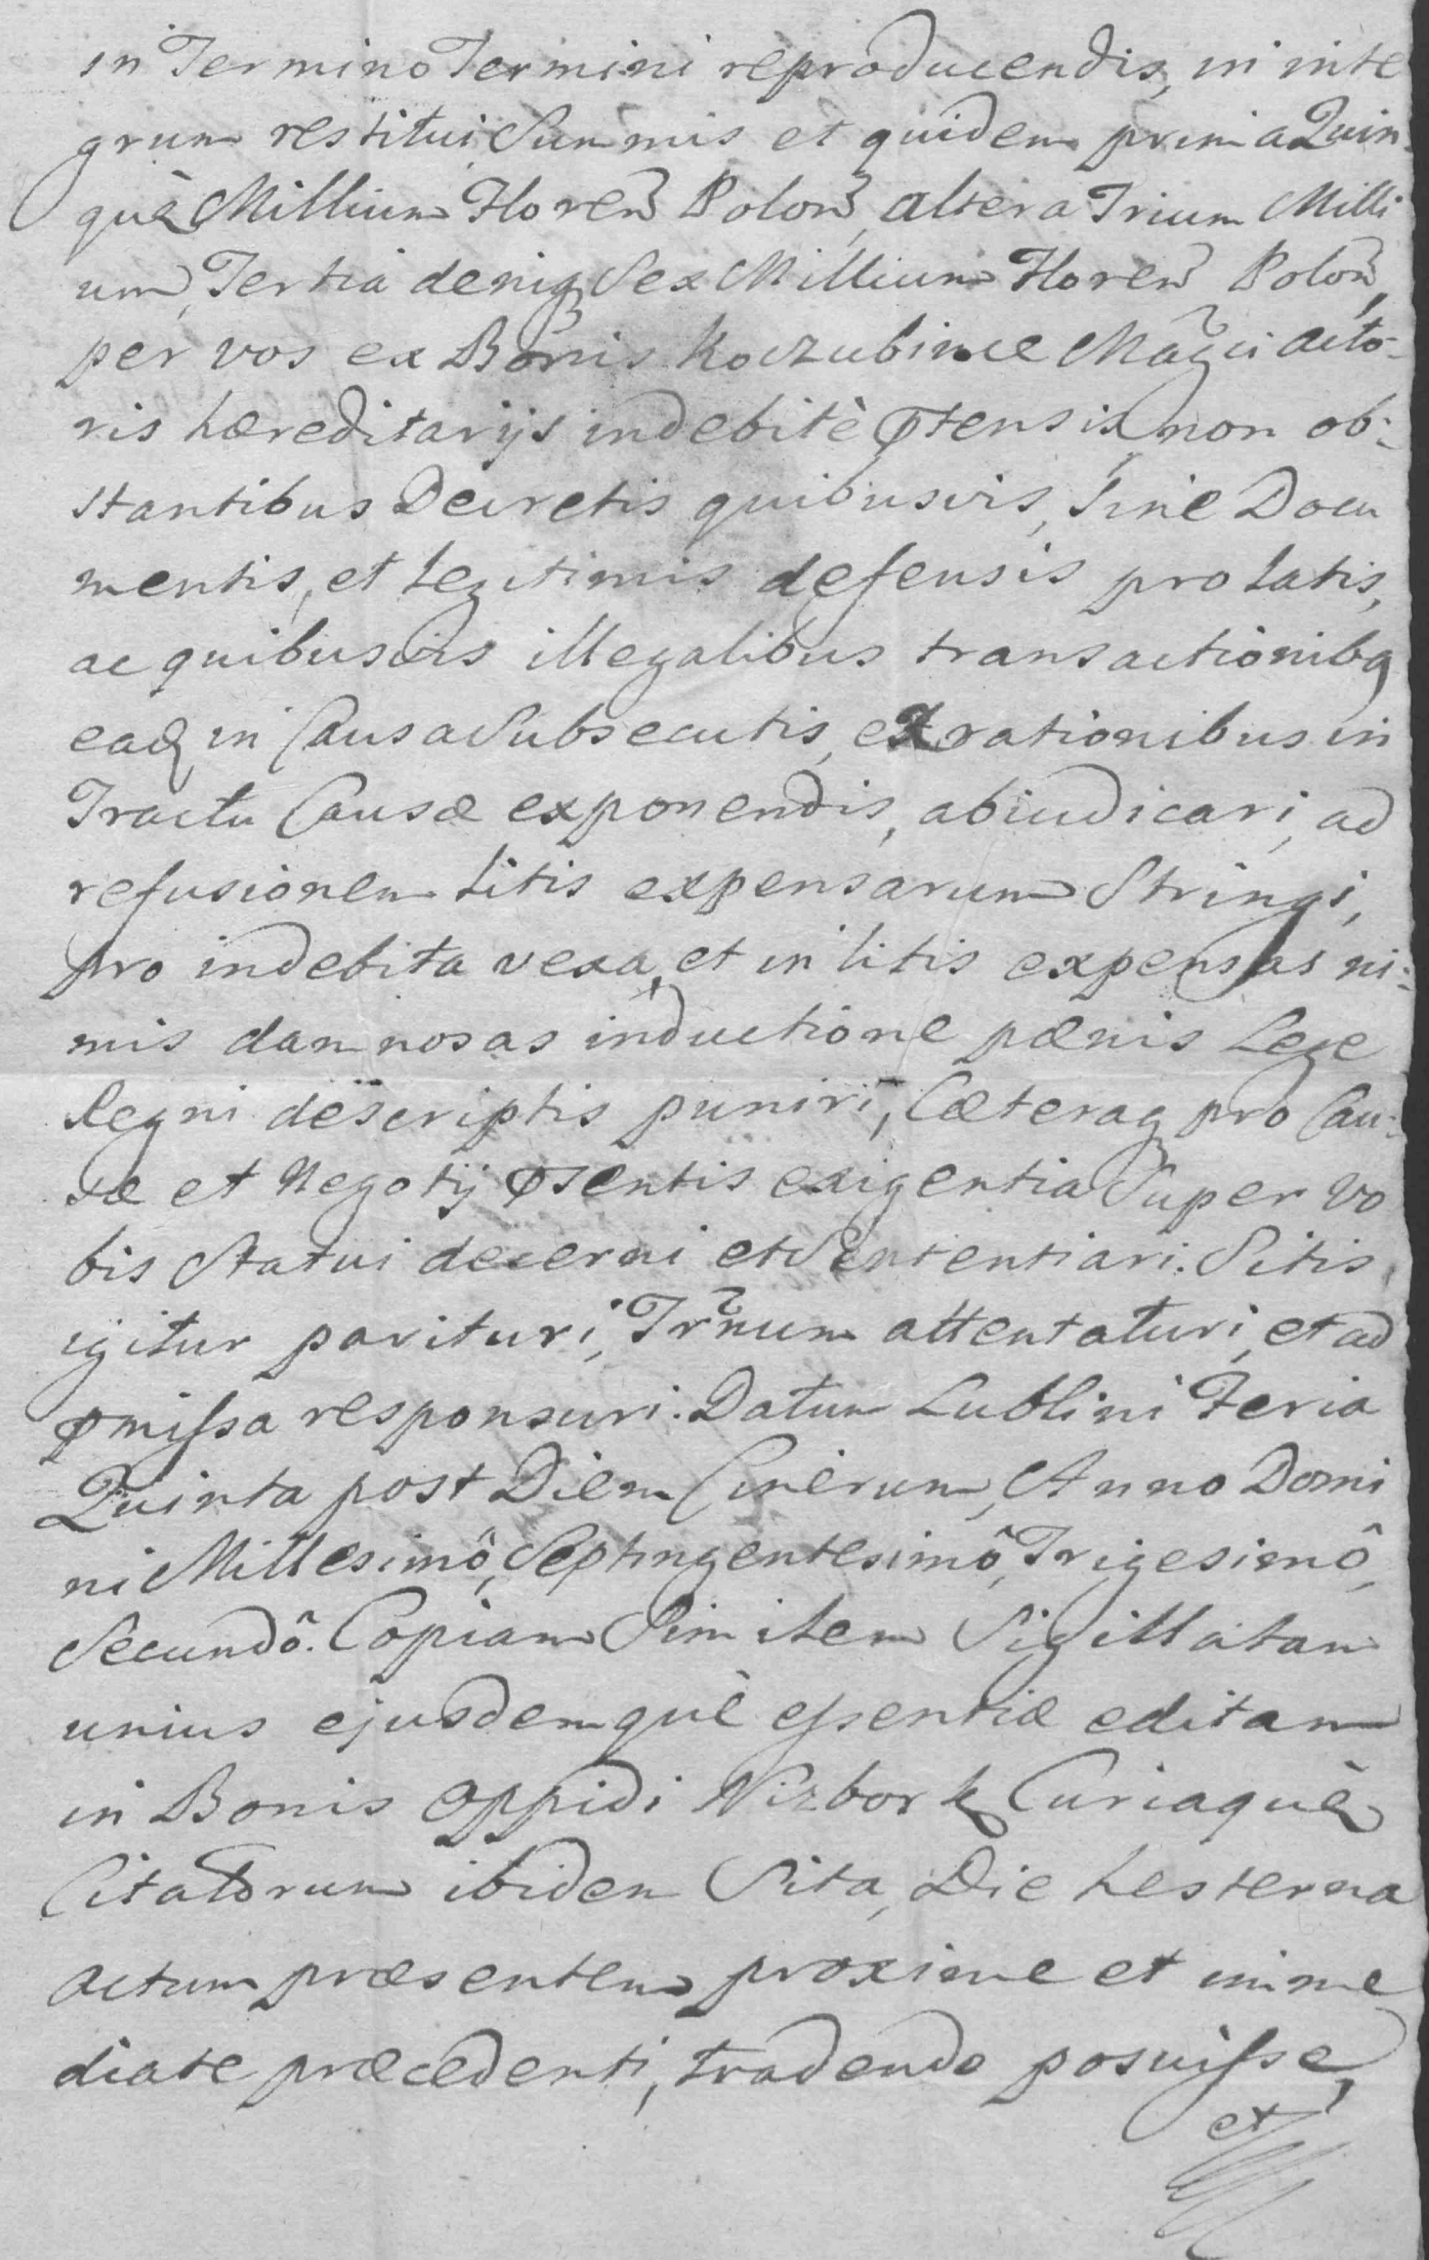 in Termino Termini reproducendis, in inte
grum restitui Summis et quidem prima Quin-
què Millium Floren Polon, altera Trium Milli
um, Tertia deniq Sex Millium Floren Polon,
per vos ex Bonis Koczubince Magci Acto-
ris hæreditarijs indebitè ptensis, non ob-
stantibus Decretis quibusvis, sine Docu
mentis, et Legitimis defensis prolatis,
ac quibusvis illegalibus transactionibq
eaq in Causa Subsecutis, et rationibus in
Tractu Causæ exponendis, abiudicari, ad
refusionem Litis expensarum Stringi,
pro indebita vexa, et in litis expensas ni-
mis damnosas inductione pænis Lege
Regni descriptis puniri, Cæteraq pro Cau-
sæ et Negotij psentis exigentia Super vo
bis Statui decerni et Sententiari. Sitis
igitur parituri, Trnum attentaturi, et ad
pmissa responsuri. Datum Lublini Feria
Quinta post Diem Cinerum, Anno Domi
ni Millesimô, Septingentesimô, Trigesimô,
Secundô. Copiam Similem Sigillatam
unius ejusdemquè essentiæ editam
in Bonis Oppidi Nizbork Curiaquè
Citatorum ibidem Sita, Die hesterna
Actum præsentem proxime et imme
diate præcedenti, tradendo posuisse,
et